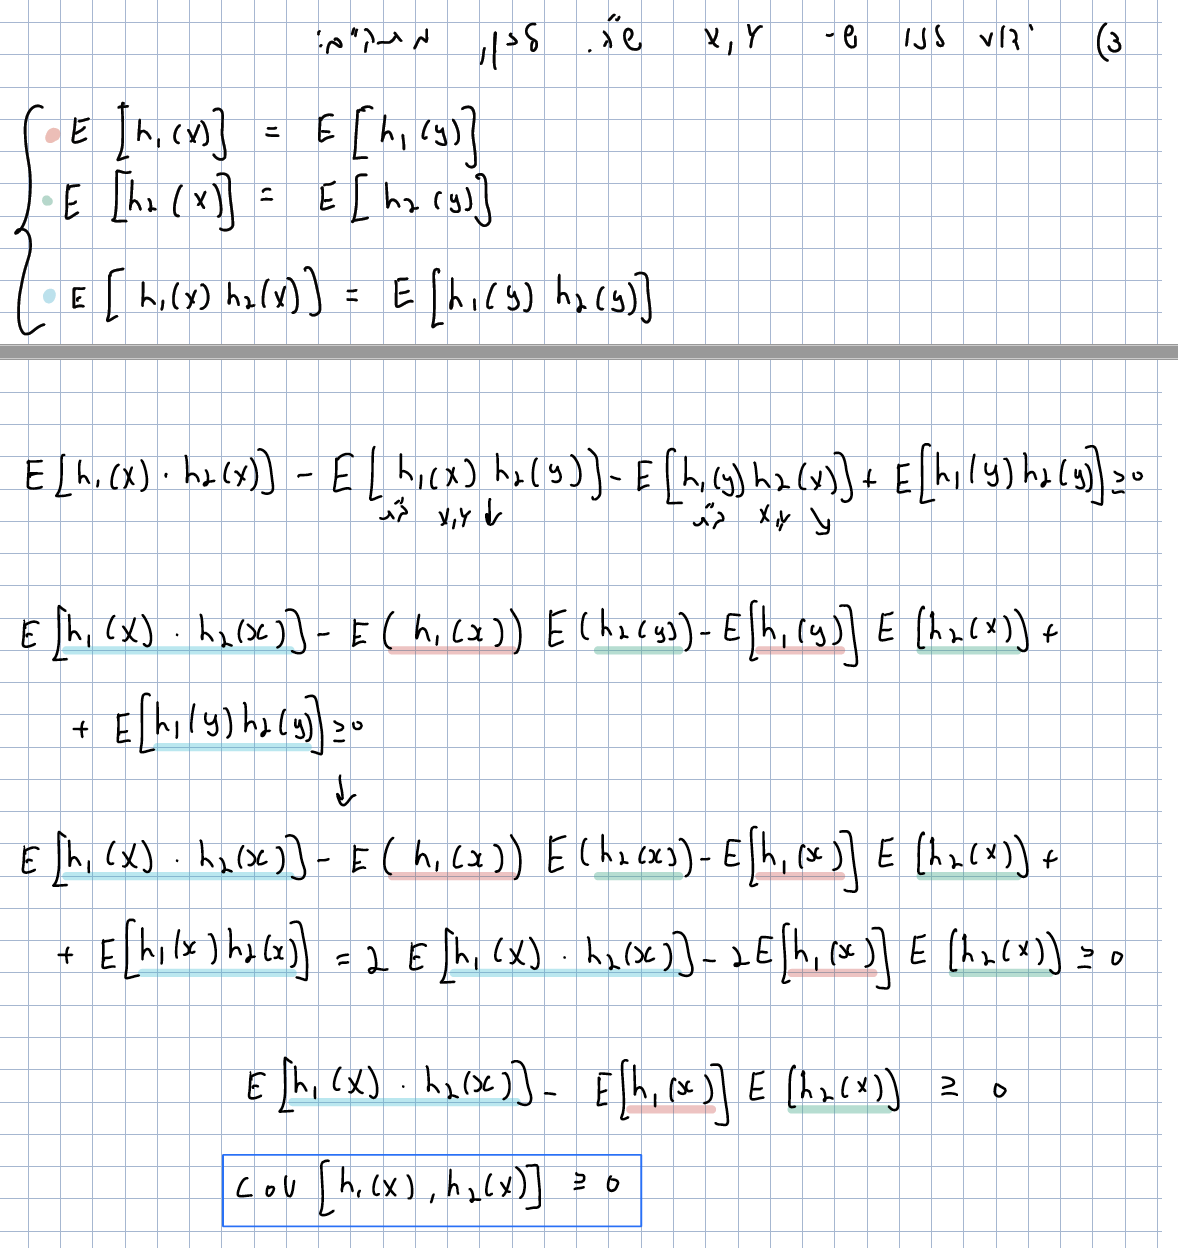 3) ידוע לנו ש- X, Y שו"מ. לכן, מתקיים:
E [h₁(x)] = E [h₁(y)]
E [h₂(x)] = E [h₂(y)]
E [h₁(x) h₂(x)] = E [h₁(y) h₂(y)]
E [h₁(x) · h₂(x)] - E [h₁(x) h₂(y)] - E [h₁(y) h₂(x)] + E [h₁(y) h₂(y)] ≥ 0
X,Y ↓ X,Y ↘
E [h₁(x) · h₂(x)] - E (h₁(x)) E (h₂(y)) - E [h₁(y)] E [h₂(x)] +
+ E [h₁(y) h₂(y)] ≥ 0
↓
E [h₁(x) · h₂(x)] - E (h₁(x)) E (h₂(x)) - E [h₁(x)] E [h₂(x)] +
+ E [h₁(x) h₂(x)] = 2 E [h₁(x) · h₂(x)] - 2 E [h₁(x)] E [h₂(x)] ≥ 0
E [h₁(x) · h₂(x)] - E [h₁(x)] E [h₂(x)] ≥ 0
cov [h₁(x), h₂(x)] ≥ 0